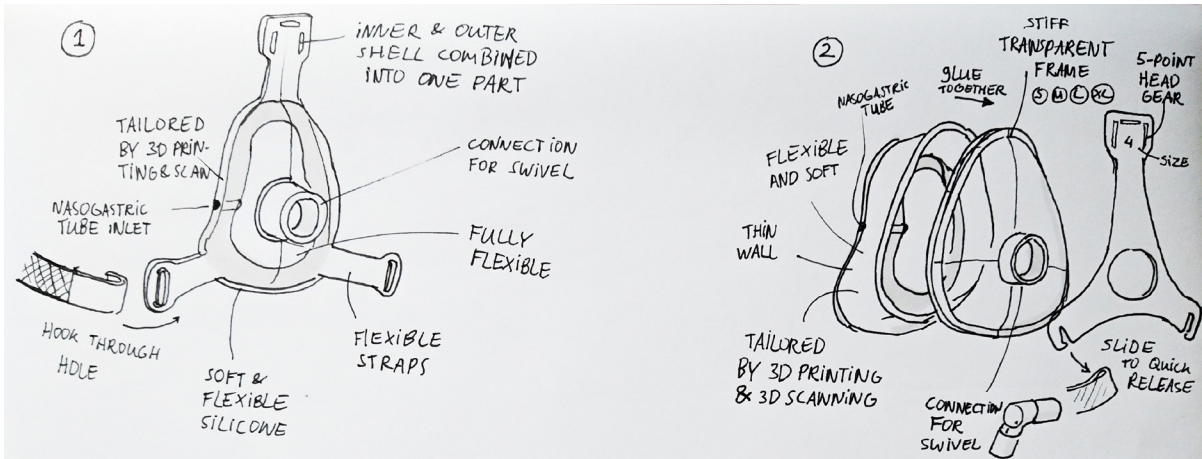 1
INNER & OUTER
SHELL COMBINED
INTO ONE PART
TAILORED
BY 3D PRIN-
TING & SCAN
CONNECTION
FOR SWIVEL
NASOGASTRIC
TUBE INLET
FULLY
FLEXIBLE
HOOK THROUGH
HOLE
FLEXIBLE
STRAPS
SOFT &
FLEXIBLE
SILICONE
2
STIFF
TRANSPARENT
FRAME
S M L XL
GLUE
TOGETHER
5-POINT
HEAD
GEAR
NASOGASTRIC
TUBE
4
SIZE
FLEXIBLE
AND SOFT
THIN
WALL
TAILORED
BY 3D PRINTING
& 3D SCANNING
SLIDE
TO QUICK
RELEASE
CONNECTION
FOR
SWIVEL